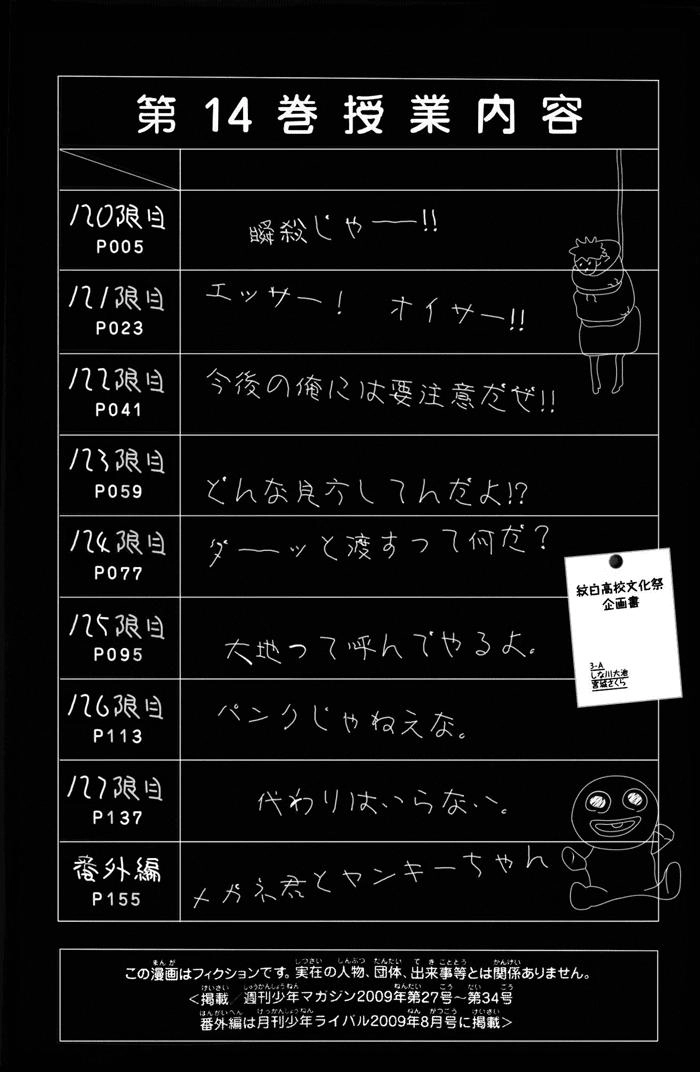 第14巻授業内容
120限目
P005
瞬殺じゃーー!!
121限目
P023
エッサー! オイサー!!
122限目
P041
今後の俺には要注意だぜ!!
123限目
P059
どんな見方してんだよ!?
124限目
P077
ダーーッと渡すって何だ?
125限目
P095
大地って呼んでやるよ。
126限目
P113
パンクじゃねえな。
127限目
P137
代わりはいらない。
番外編
P155
メガネ君とヤンキーちゃん
紋白高校文化祭
企画書
3-A
しな川大池
宮城さくら
この漫画はフィクションです。実在の人物、団体、出来事等とは関係ありません。
<掲載/週刊少年マガジン2009年第27号~第34号
番外編は月刊少年ライバル2009年8月号に掲載>